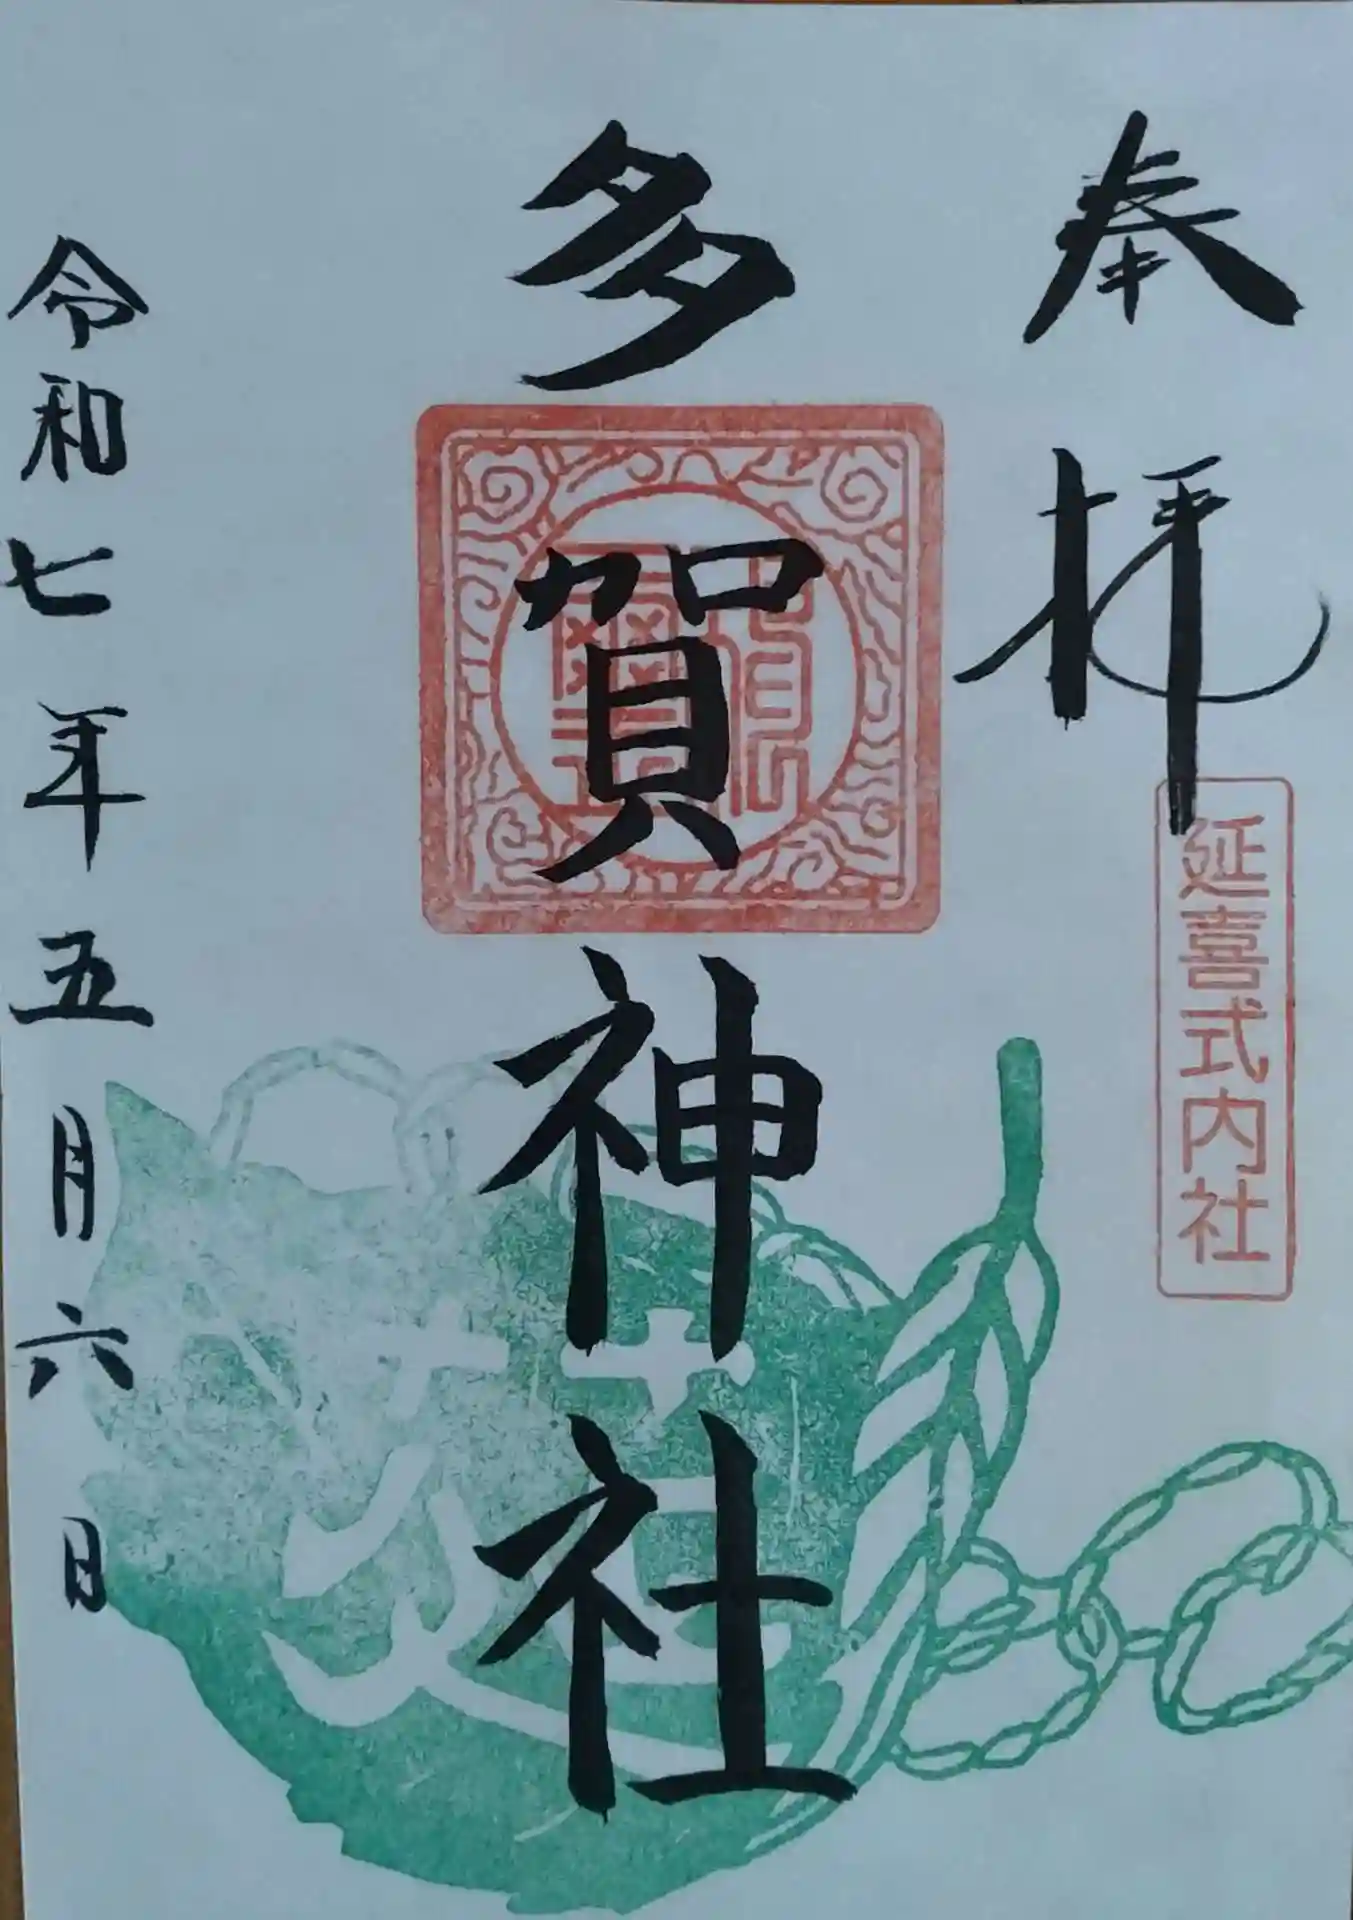 奉拝
延喜式内社
多賀神社
令和七年五月六日